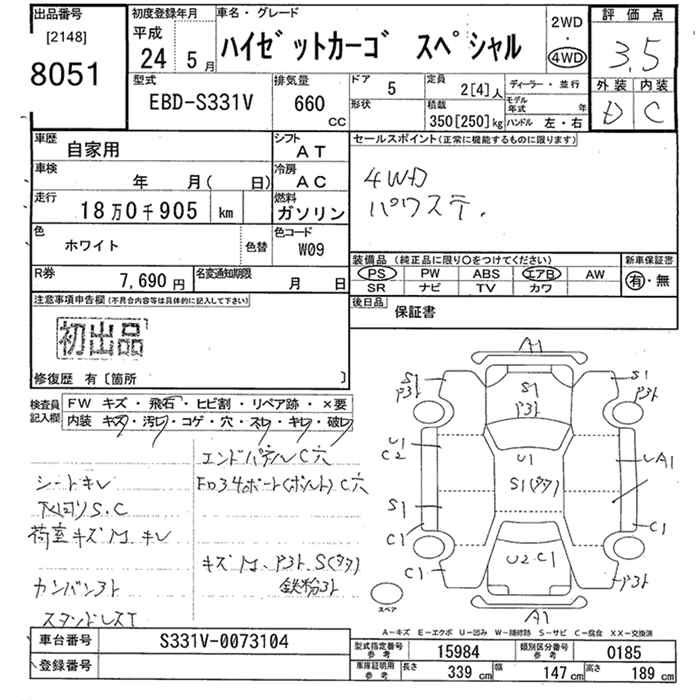 出品番号 初度登録年月 車名・グレード 2WD 評価点
[2148] 平成 ・ 3.5
8051 24年 5月 ハイゼットカーゴ スペシャル 4WD
型式 排気量 ドア 定員 ディーラー・並行 外装 内装
EBD-S331V 660 CC 5 2[4]人 モデル年式 年 D C
形状 積載 350[250]kg ハンドル 左・右
車歴 自家用 シフト AT セールスポイント(正常に機能するものに限ります)
車検 年 月( 日) 冷房 AC 4WD
走行 18万0千905 km 燃料 ガソリン パワステ.
色 ホワイト 色替 色コード W09
装備品(純正品に限り○をつけてください) 新車保証書
R券 7,690円 名変通知期限 月 日 PS PW ABS エアB AW 有・無
SR ナビ TV カワ
注意事項申告欄(不具合内容等は具体的に記入して下さい) 後日品 保証書
初出品
修復歴 有〔箇所 〕
検査員記入欄 FW キズ・飛石・ヒビ割・リペア跡・×要
内装 キズ・汚レ・コゲ・穴・スレ・キレ・破レ
エンドパネルC穴
シートキレ
下回りS.C
荷室キズM.キレ
キズM、Pヌケ S(タタ)
鉄粉ヌケ
A1
S1 S1
S1
U1 U1 A1
C2 S1(タタ)
S1
C1 C1
C1 U2.C1
A1
スペア
A-キズ E-エクボ U-凹み W-補修跡 S-サビ C-腐食 XX-交換済
車台番号 S331V-0073104 型式指定番号 参考 15984 類別区分番号 参考 0185
登録番号 車庫証明用 参考 長さ 339cm 幅 147cm 高さ 189cm